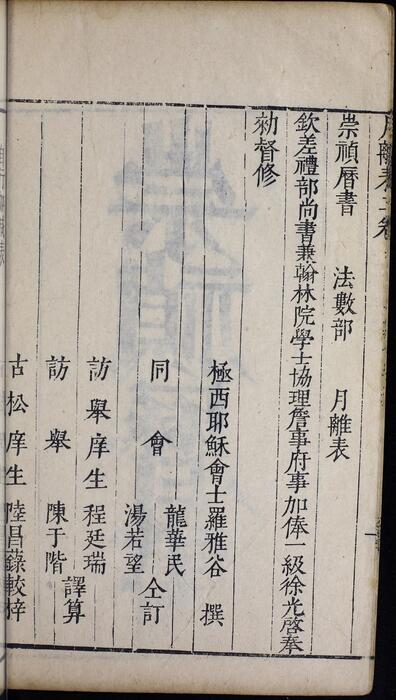 月離表二卷
崇禎曆書 法數部 月離表
欽差禮部尚書兼翰林院學士協理詹事府事加俸一級徐光啓奉
勑督修
極西耶穌會士羅雅谷 撰
同會 龍華民
湯若望 仝訂
訪舉庠生程廷瑞
訪舉 陳于階 譯算
古松庠生 陸昌蘓較梓